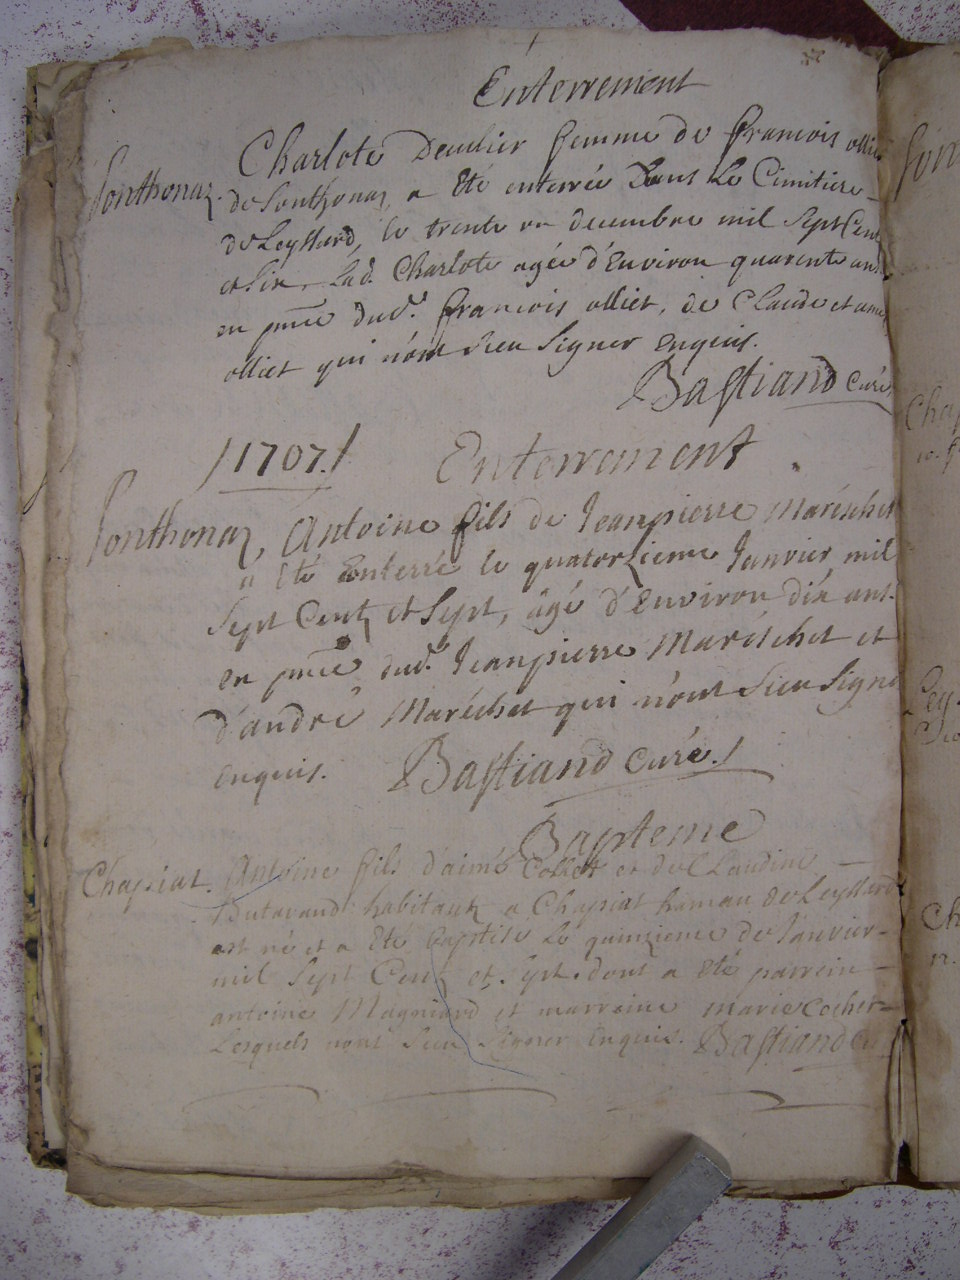 Enterrement
Charlote Deculier femme de francois olliet
Sonthonaz. de Sonthonaz, a été enterrée Dans Le Cimitiere
de Leyssard, le trente un decembre mil Sept Cent
et Six, Lad. Charlote agée d'Environ quarente ans
en pnce dud. francois olliet, de Claude et
olliet qui n'ont Sceu Signer Enquis.
Bastiand Curé
/1707./ Enterrement
Sonthonaz, Antoine fils de Jeanpierre Maréschet
a été Enterré le quatorzieme Janvier mil
Sept Centz et Sept, âgé d'Environ dix ans.
en pnce dud. Jeanpierre Maréschet et
d'andré Maréchet qui n'ont Sceu Signé
Enquis. Bastiand Curé./
Bapteme
Chapiat. Antoine fils d'aimé Collet et de Claudine
Dutarand habitantz a Chapiat hameau de Leyssard
est né et a été baptisé Le quinzieme de Janvier
mil Sept Centz et Sept. dont a été parrein
antoine Magniard et marreine marie Cocher
Lesquels n'ont Sceu Signer Enquis. Bastiand